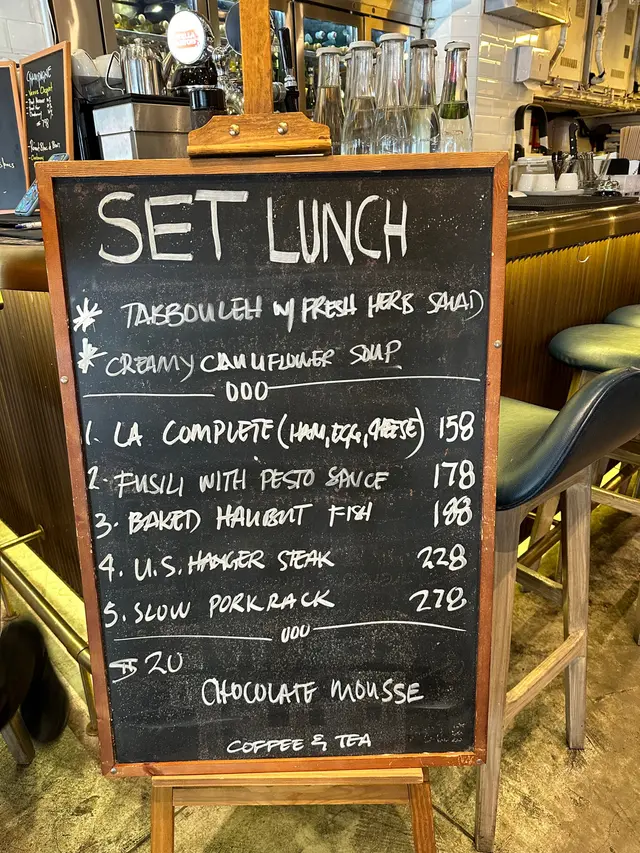 SET LUNCH
* TABBOULEH W/ FRESH HERB SALAD
* CREAMY CAULIFLOWER SOUP
1. LA COMPLETE (HAM, EGG, CHEESE) 158
2. FUSILI WITH PESTO SAUCE 178
3. BAKED HALIBUT FISH 198
4. U.S. HANGER STEAK 228
5. SLOW PORK RACK 278
$20
CHOCOLATE MOUSSE
COFFEE & TEA
CHAMPAGNE